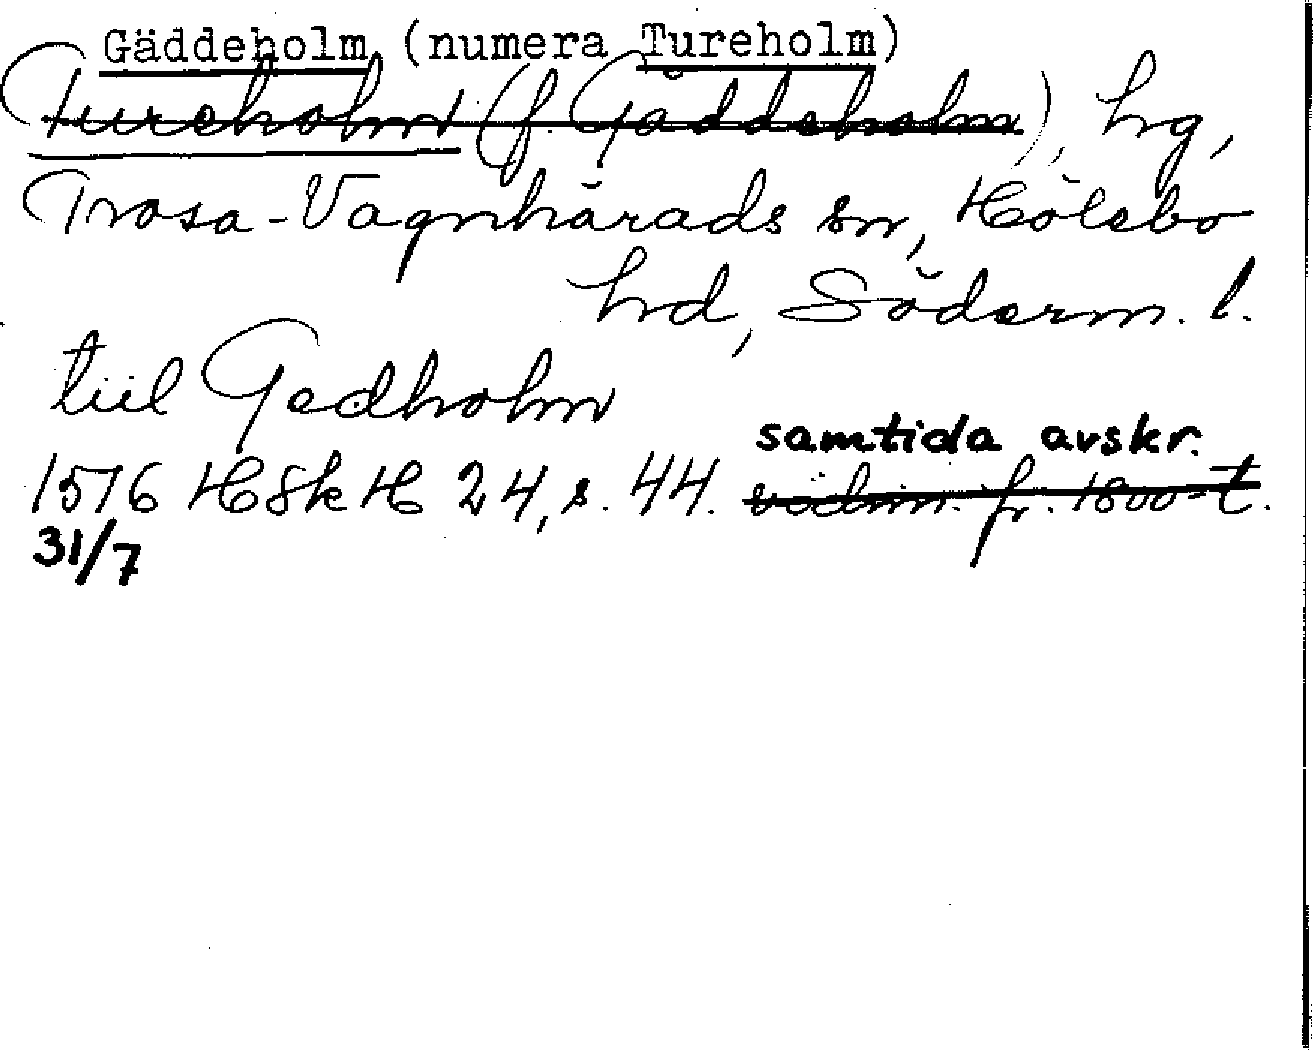 Gäddeholm (numera Tureholm)
Tureholm (f. Gäddeholm), hg,
Trosa-Vagnhärads sn, Hölebo
hd, Söderm. l.
tiil Gedholm
samtida avskr.
1576 HSkH 24, s. 44. vidim. fr. 1800-t.
31/7